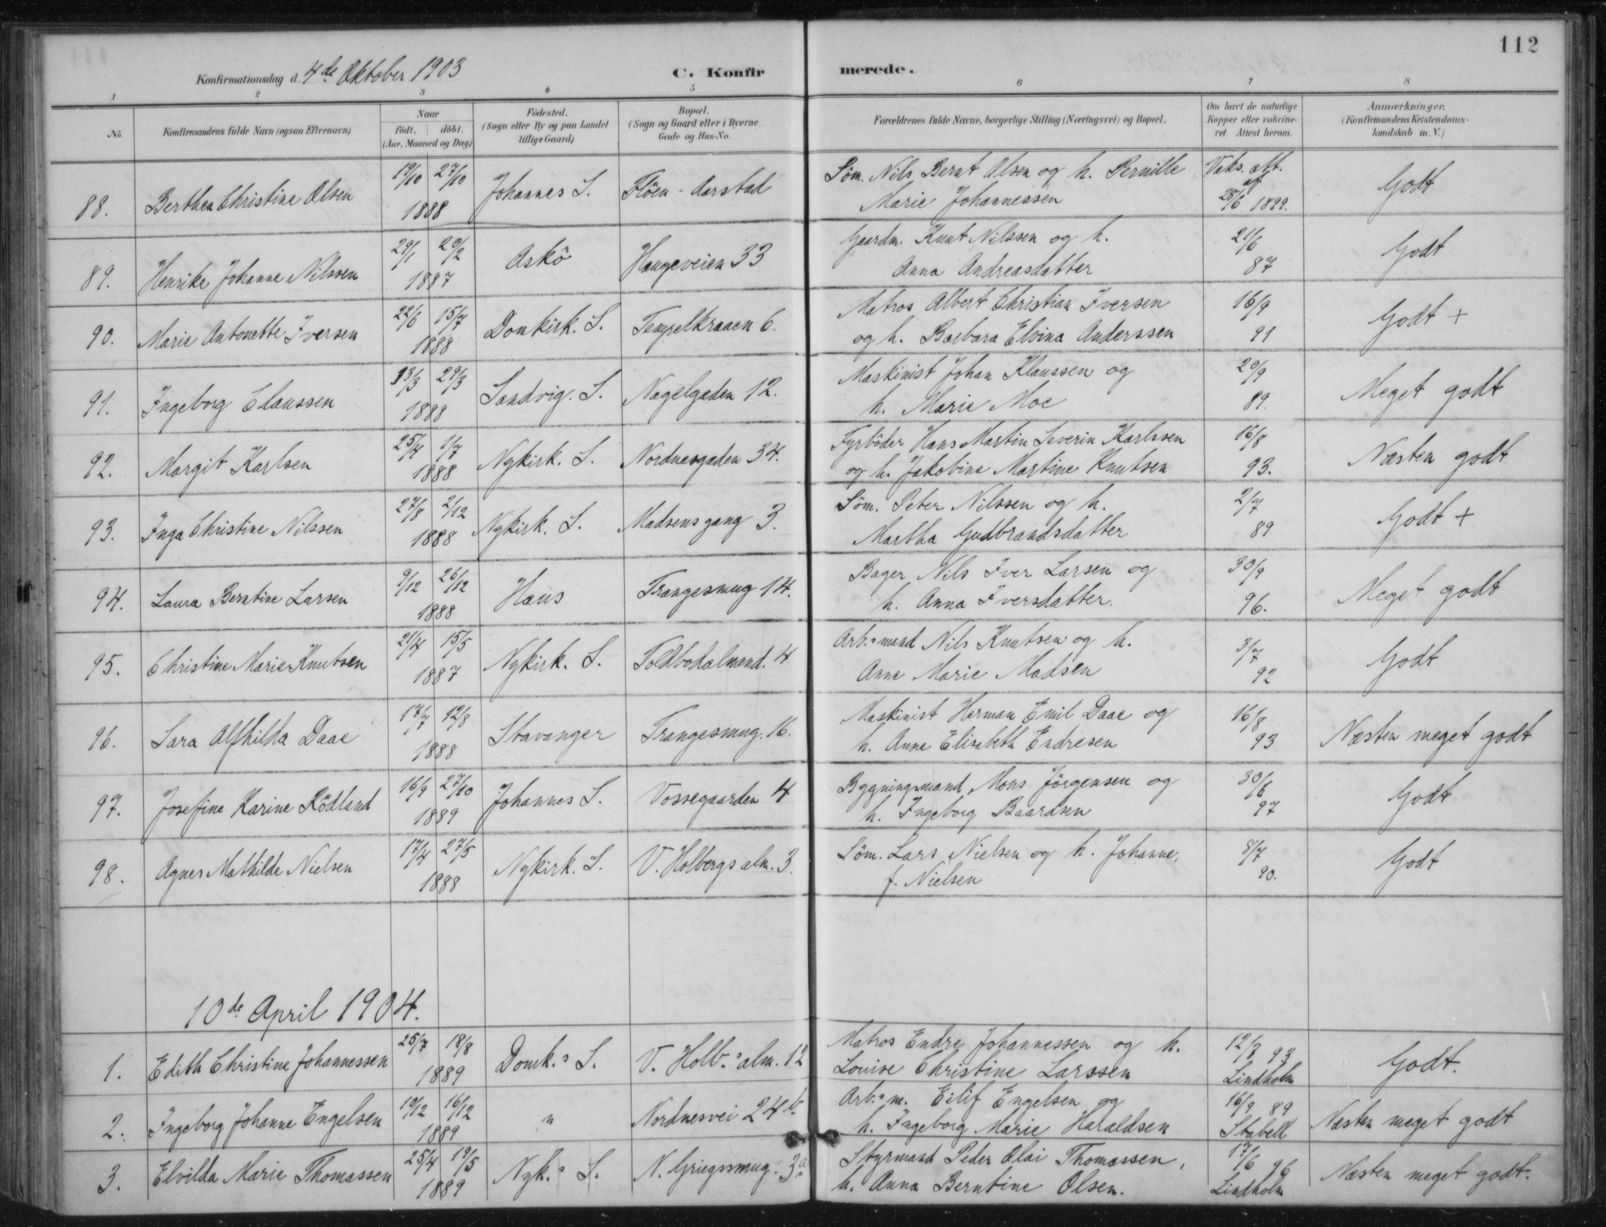 112
Konfirmationsdag d. 4de Oktober 1903
C. Konfirmerede.
1 2 3 4 5 6 7 8
No. Konfirmandens fulde Navn (ogsaa Efternavn) Naar født. døbt. (Aar, Maaned og Dag) Fødested. (Sogn eller By og paa Landet tillige Gaard) Bopæl. (Sogn og Gaard eller i Byerne Gade og Hus-No. Forældrenes fulde Navne, borgerlige Stilling (Næringsvei) og Bopæl. Om havt de naturlige Kopper eller vaccineret. Attest herom. Anmærkninger. (Konfirmandens Kristendomskundskab m. V.)
88. Berthea Christine Olsen 19/10 27/10 1888 Johannes S. Flöen - Aarstad Söm. Nils Bernt Olsen og h. Pernille Vaks. att.
Marie Johannessen 28/6 1899. Godt
89. Henrike Johanne Nilssen 29/1 20/2 1887 Askö Haugeveien 33 Gaardm. Knut Nilssen og h. 21/6
Anna Andreasdatter 87 Godt
90. Marie Antonette Iversen 22/6 15/7 1888 Domkirk. S. Tempelkraaen 6. Matros Albert Christian Iversen 16/9
og h. Barbara Elvina Anderssen 91 Godt +
91. Ingeborg Claussen 13/3 29/3 1888 Sandvig. S. Nagelgaden 12. Maskinist Johan Klaussen og 20/9
h. Marie Moe 89. Meget godt
92. Margit Karlsen 25/4 1/7 1888 Nykirk. S. Nordnesgaden 34. Fyrböder Hans Martin Severin Karlssen 16/8
og h. Jakobine Martine Knutsen 93. Næsten godt
93. Inga Christine Nilssen 27/8 2/12 1888 Nykirk. S. Madsens gang 3. Söm. Peter Nilssen og h. 2/7
Martha Gudbrandsdatter 89 Godt +
94. Laura Berntine Larsen 9/12 26/12 1888 Haus Trangesmug 14. Bager Nils Iver Larsen og 30/9
h. Anna Iversdatter. 96. Meget godt
95. Christine Marie Knutsen 21/4 15/5 1887 Nykirk. S. Toldbodalmend. 4 Arb.mand Nils Knutsen og h. 3/7
Anne Marie Madsen 92 Godt
96. Sara Alfhilda Daae 17/7 12/8 1888 Stavanger Trangesmug. 16. Maskinist Herman Emil Daae og 16/8
h. Anne Elisebeth Endresen 93 Næsten meget godt
97. Josefine Karine Rödland 16/9 27/10 1889 Johannes S. Vossegaarden 4 Bygningsmand Mons Jörgensen og 30/6
h. Ingeborg Baardsen 97 Godt
98. Agnes Mathilde Nielsen 17/4 27/5 1888 Nykirk. S. V. Holbergs alm. 3. Söm. Lars Nielsen og h. Johanne, 8/7
f. Nielsen 90. Godt
10de April 1904.
1. Edith Christine Johannessen 25/7 18/8 1889 Domk. S. V. Holb. alm. 12 Matros Endre Johannessen og h. 12/7 93
Louise Christine Larssen Lindholm Godt.
2. Ingeborg Johanne Engelsen 19/2 16/12 1889 " Nordnesvei 24 b Arb.m. Eilif Engelsen og 16/9 89
h. Ingeborg Marie Haraldsen Stabell Næsten meget godt
3. Elvilda Marie Thomassen 25/4 19/5 1889 Nyk. S. N. Griegssmug. 3a Styrmand Peder Olai Thomassen, 17/6 96
h. Anna Berntine Olsen. Lindholm Næsten meget godt.